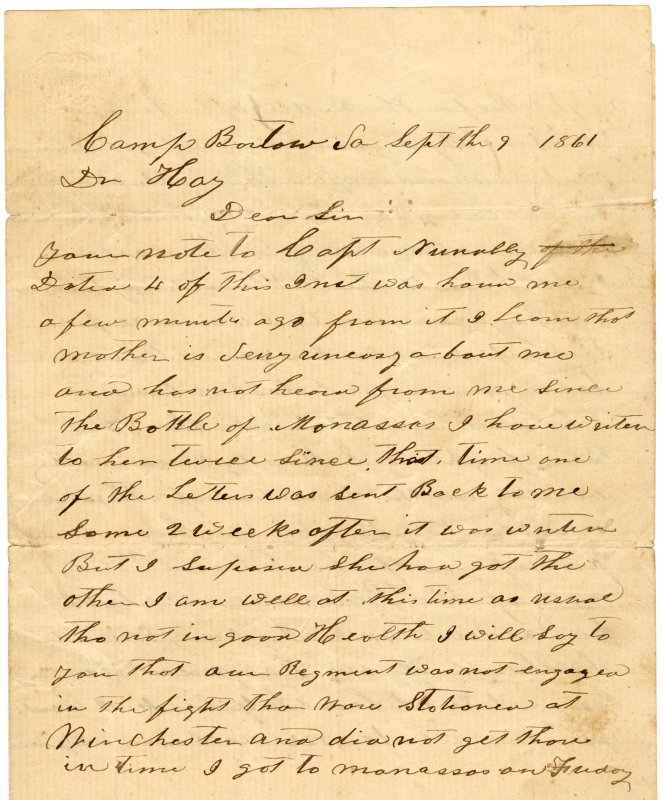 Camp Bartow Va Sept the 9 1861
Dr Hay
Dear Sir
your note to Capt Nunally of the
Dated 4 of this Inst was hand me
a few minuts ago from it I Learn that
mother is Very uneasy a bout me
and has not heard from me Since
the Battle of Manassas I have writen
to her twice Since that time one
of the Letters was Sent Back to me
Some 2 weeks after it was writen
But I Suposed She had got the
other I am well at this time as usual
tho not in good Health I will Say to
you that our Regment was not engaged
in the fight tha ware Stationed at
Winchester and did not get thare
in time I got to manassas on Friday